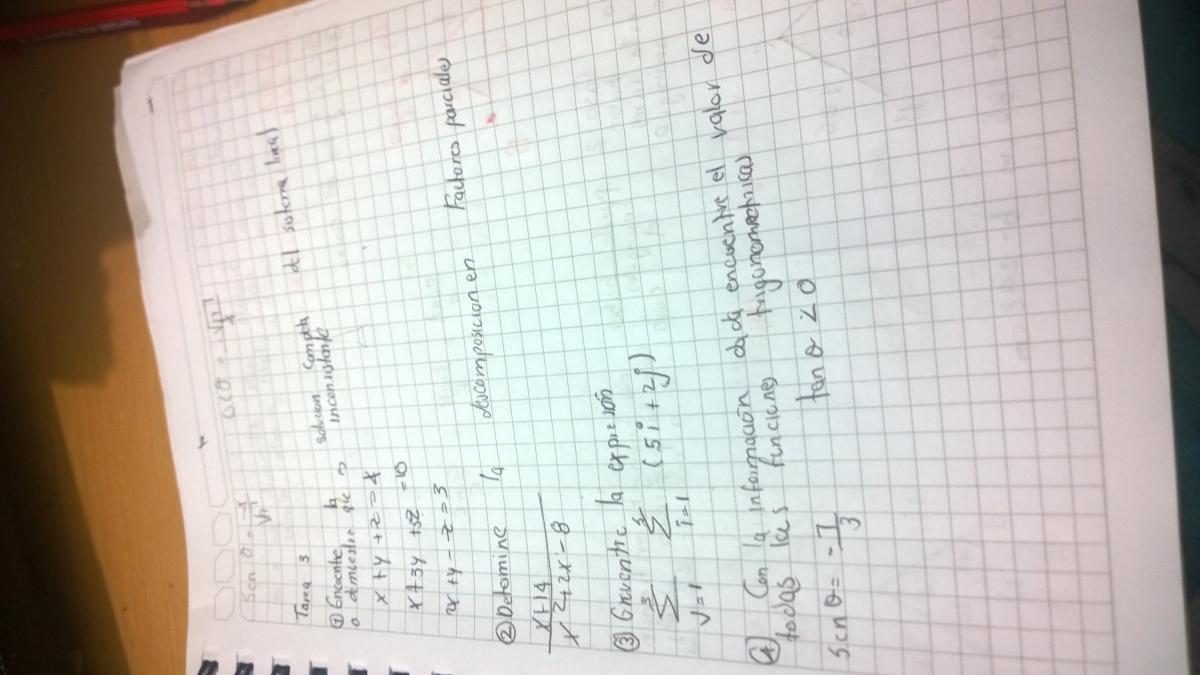 Sen θ = -
sec θ =
Tarea 3
① Encuentre la solucion completa del sistema lineal
o demuestre que es inconsistente
x + y + z = 4
x + 3y + 3z = 10
2x + y - z = 3
② Determine la descomposicion en Factores parciales
x + 14
x² + 2x - 8
③ Encuentre la expresión
3 3
∑ ∑ (5i + 2j)
J=1 i=1
④ Con la información dada encuentre el valor de
todas las funciones trigonometricas
sen θ = - 7/3 tan θ < 0